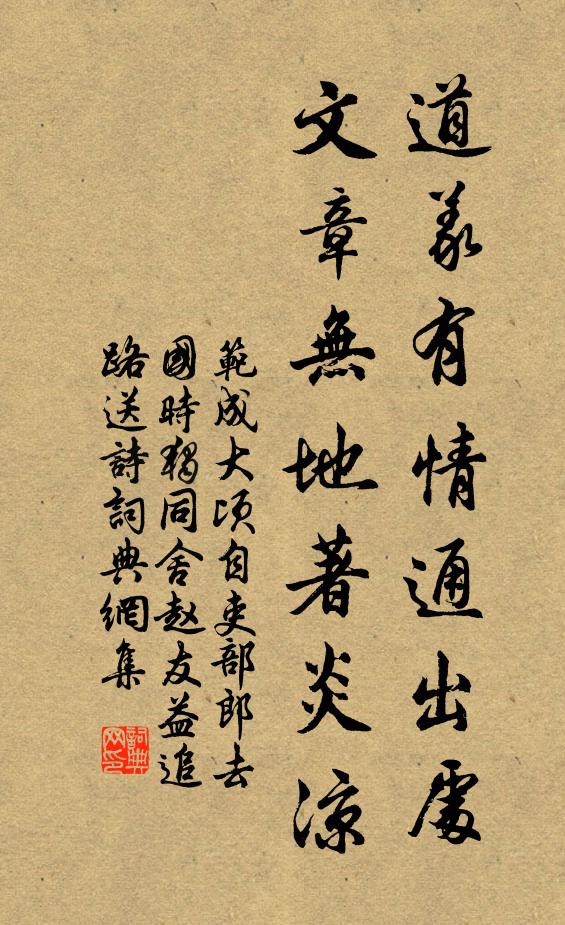 道義有情通出處
文章無地著炎涼
範成大頃自吏部郎去
國時獨同舍趙友益追
路送詩詞典網集
詞典
网印